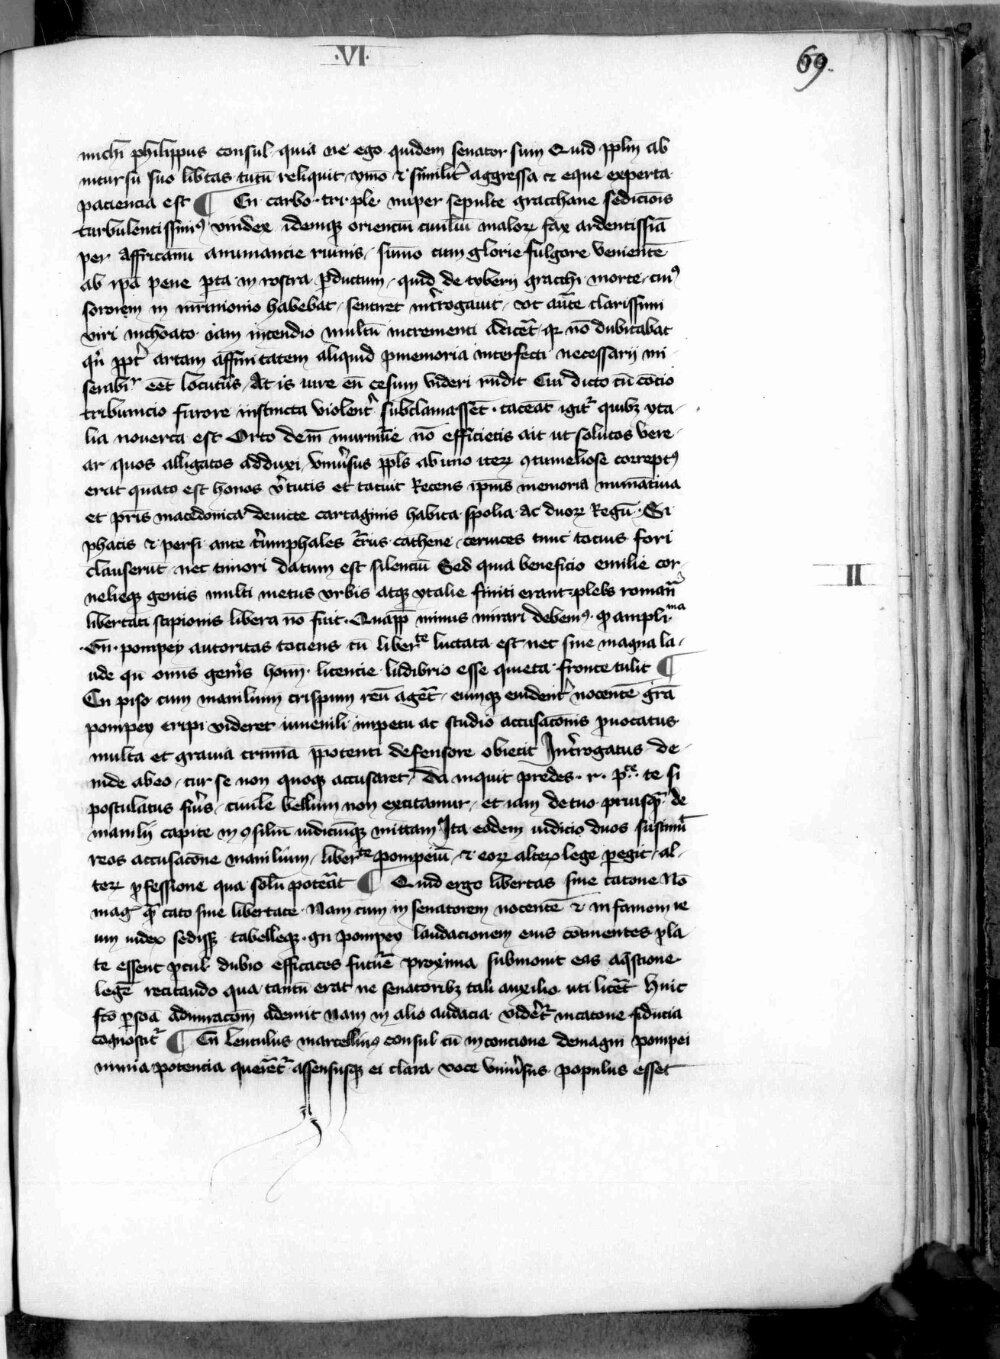 ·VI·
69.
michi philippus consul quia ne ego quidem senator sum Quid pplm ab
incursu suo libtas tutu reliquit ymo & similit aggressa & eque experta
paciencia est ¶ Cn carbo · tri · ple · nuper sepulte gracchane sedicionis
turbulentissimus vindex idemque oriencium civilium malorum fax ardentissima
per affricanu anumancie ruinis summo cum glorie fulgore veniente
ab ipa pene pta in rostra pductum · quid de tyberii gracchi morte cuius
sororem in mrimonio habebat sentiret introgavit · vt aucte clarissimi
viri inchoato iam incendio multu incrementi adiceret quia no dubitabat
quin ppt artam affinitatem aliquid pmemoria interfecti necessarii mi
serabilr eet locutus · At is iure en cesum videri rndit Cui dicto cu cocio
tribunicio furore instincta violent subclamasset · taceat igit quibus yta
lia noverca est Orto dein murmure no efficietis ait ut solutos vere
ar quos alligatos adduxi universus ppls ab uno iterum contumeliose correptus
erat quato est honos vtutis et tacuit Recens ipius memoria numantina
et pris macedonica devicte cartaginis habita spolia Ac duorum Regum · Si
phacis & persi ante triumphales currus cathene cervices tunc tocius fori
clauserut nec timori datum est silenciu Sed quia beneficio emilie cor
nelieque gentis multi metus vrbis atque ytalie finiti erant plebs romana
libertati scipionis libera no fuit · Quapp minus mirari debemus · quod ampliima
· Cn · pompey autoritas tociens cu liberte luctata est nec sine magna la
ude qn omnis genis homn licencie ludibrio esse quieta fronte tulit ¶
Cn piso cum manilium crispum reu ageret eumque evident nocente gra
pompey eripi videret iuvenili impetu ac studio accusaconis pvocatus
multa et gravia crimina prpotenti defensore obiecit Introgatus de
inde abeo cur se non quoque accusaret Da inquit predes · r · p · te si
postulatus fuis civile bellum non excitamur et iam de tuo priusquam de
manilii capite in consilium iudicumque mittam Ita eodem iudicio duos sustinuit
reos accusacone manilium liberte pompeiu & eorum alterum lege pegit al
terum pfessione qua solu poterat ¶ Quid ergo libertas sine catone No
mag quam cato sine libertate Nam cum in senatorem nocente & infamem re
um iudex sedisset tabelleque · gn pompey laudacionem eius continentes pla
te essent pcul dubio efficaces future proxima submovit eas aqstione
lege recitando qua cantu erat ne senatoribus tali auxilio uti liceret Huic
fco psoa admiracom ademit Nam in alio audacia videret in catone fiducia
cognoscit ¶ Cn lentulus marcellinus consul cu in concione demagni pompei
nimia potencia queret assensusque ei clara voce universus populus esset
II